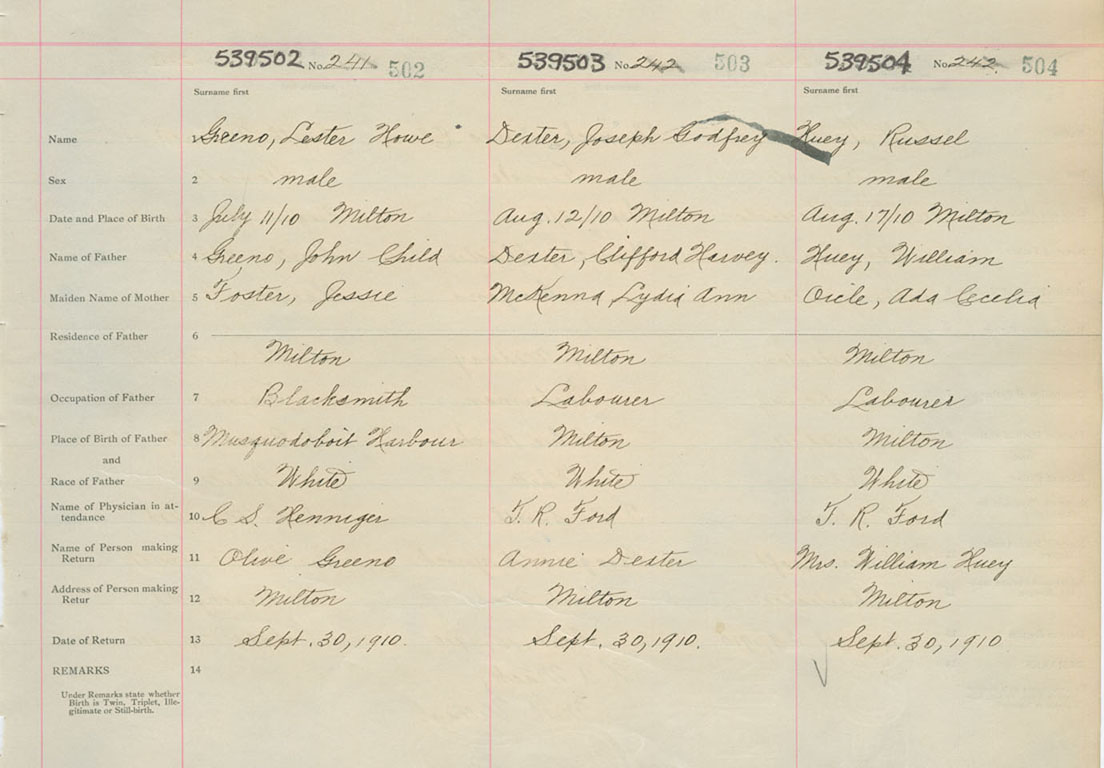 539502 No. 241 502 539503 No. 242 503 539504 No. 243 504
Surname first Surname first Surname first
Name 1 Greeno, Lester Howe Dexter, Joseph Godfrey Huey, Russel
Sex 2 male male male
Date and Place of Birth 3 July 11/10 Milton Aug. 12/10 Milton Aug. 17/10 Milton
Name of Father 4 Greeno, John Child Dexter, Clifford Harvey. Huey, William
Maiden Name of Mother 5 Foster, Jessie McKenna, Lydia Ann Oicle, Ada Cecelia
Residence of Father 6
Milton Milton Milton
Occupation of Father 7 Blacksmith Labourer Labourer
Place of Birth of Father 8 Musquodoboit Harbour Milton Milton
and
Race of Father 9 White White White
Name of Physician in at-
tendance 10 C S. Henniger T. R. Ford T. R. Ford
Name of Person making
Return 11 Olive Greeno Annie Dexter Mrs. William Huey
Address of Person making
Retur 12 Milton Milton Milton
Date of Return 13 Sept. 30, 1910. Sept. 30, 1910. Sept. 30, 1910
REMARKS 14
Under Remarks state whether
Birth is Twin, Triplet, Ille-
gitimate or Still-birth.